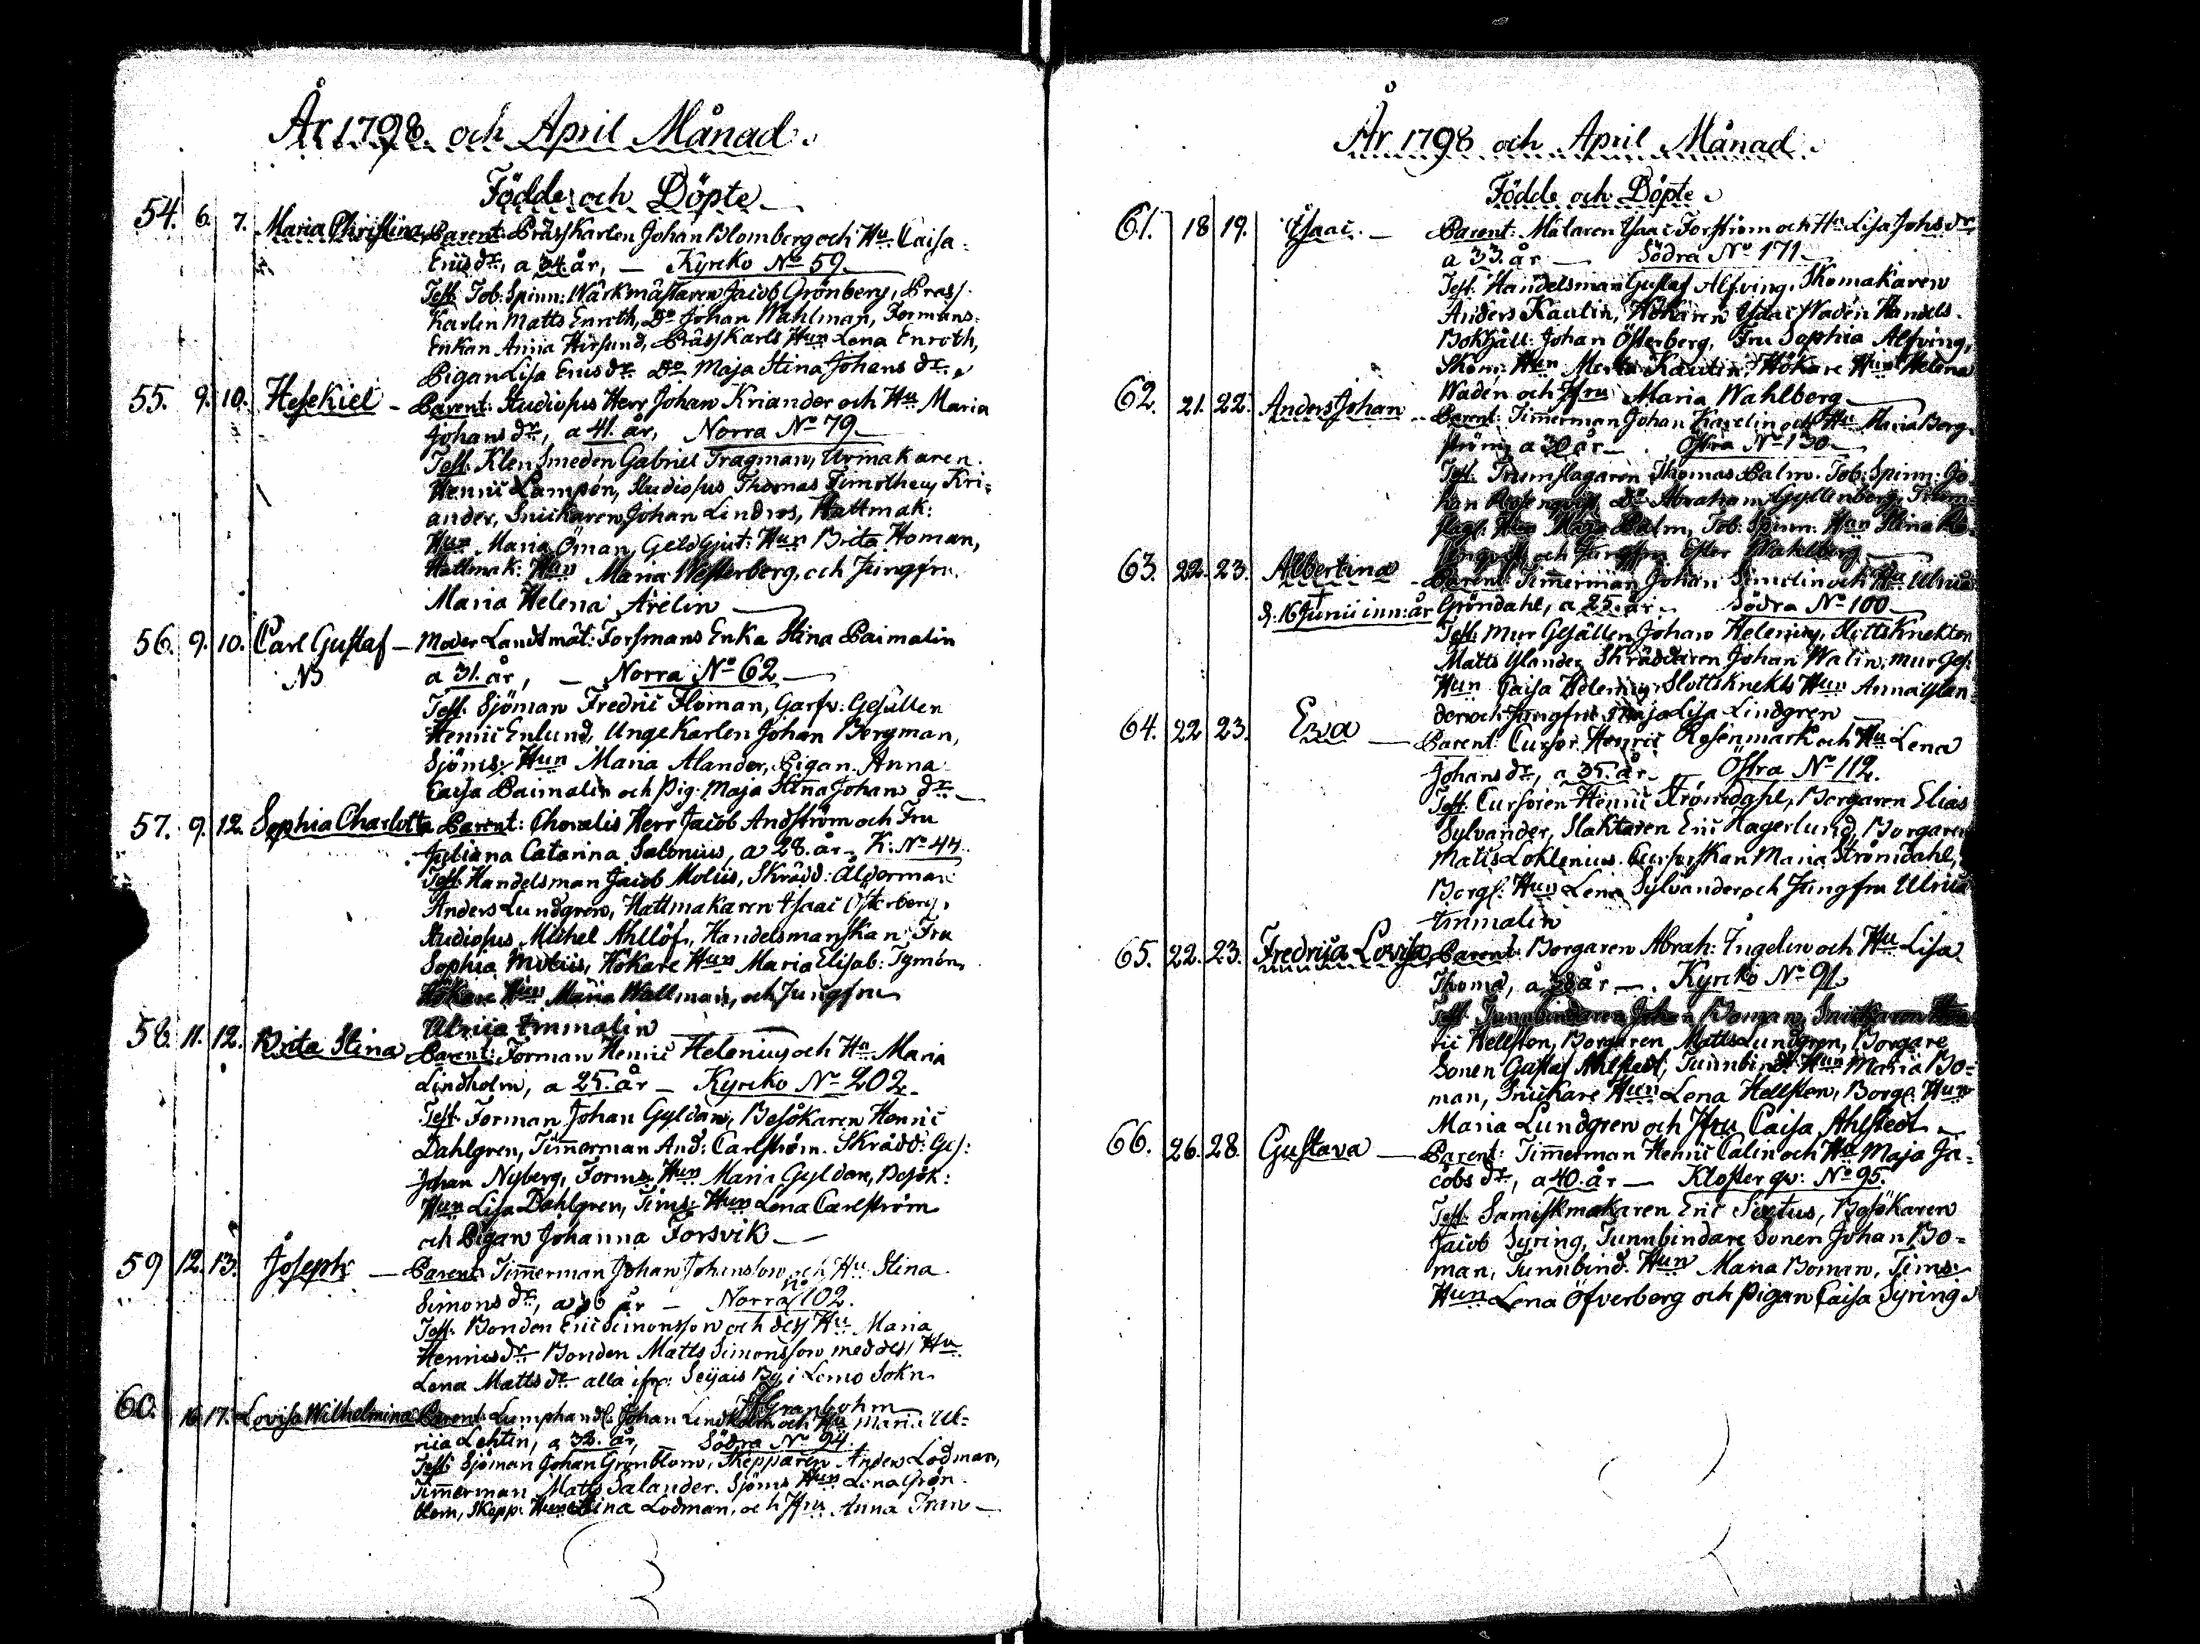 År 1798. och April Månad.
Födde och Döpte
54. 6. 7. Maria Christina, Parent: Bråsskarlen Johan Blomberg och Hu. Caisa
Ericsdr, a 34 år, — Kyrcko No 59.
Test. Tob: Spinn: Wärkmästaren Jacob Grönberg, Bråss-
karlen Matts Enroth, Do Johan Wahlman, Formans-
Enkan Anna Hirsund, Bråsskarls Hun Lena Enroth,
Pigan Lisa Ericsdr Do Maja Stina Johansdr.
55. 9. 10. Hesekiel - Parent: Studiosus Herr Johan Kriander och Hu Maria
Johansdr, a 41. år, Norra No 79.
Test. Klensmeden Gabriel Tragman, Urmakaren
Henric Lampén, Studiosus Thomas Timotheus Kri-
ander, Snickaren Johan Lindros, Hattmak:
Hun Maria Öman, Geldgjut: Hun Brita Homan,
Hattmak: Hun Maria Westerberg, och Jungfru
Maria Helena Arelin
56. 9. 10. Carl Gustaf — Moder Landtmät: Forsmans Enka Stina Paimalin
NB a 31. år, — Norra No 62
Test. Sjöman Fredric Floman, Garfv: Gesällen
Henric Enlund, Unge Karlen Johan Bergman,
Sjöms: Hun Maria Alander, Pigan Anna
Caisa Paimalin och Pig: Maja Stina Johansdr.
57. 9. 12. Sophia Charlotta Parent: Choralis Herr Jacob Andström och Fru
Juliana Catarina Salonius, a 28. år. K: No 44.
Test. Handelsman Jacob Molius, Skrädd: Ålderman
Anders Lundgren, Hattmakaren Isaac Österberg,
Studiosus Michel Ahllöf, Handelsmanskan Fru
Sophia Molius, Hökare Hun Maria Elisab: Tymén,
Hökare Hun Maria Wallman, och Jungfru
Ulrica Timmalin
58. 11. 12. Brita Stina Parent: Forman Henric Helenius och Hu Maria
Lindholm, a 25. år — Kyrcko No 202.
Test. Forman Johan Gyldan, Besökaren Henric
Dahlgren, Timmerman And: Carlström. Skrädd: Ges:
Johan Nyberg, Forms: Hun Maria Gyldan, Besök:
Hun Lisa Dahlgren, Tims: Hun Lena Carlström
och Pigan Johanna Forsvik
59 12. 13. Joseph — Parent: Timmerman Johan Johansson och Hu. Stina
Simonsdr, a år — Norra No 102.
Test. Bonden Eric Simonsson och dess Hu Maria
Henricsdr Bonden Matts Simonsson med dess Hu
Lena Mattsdr alla ifr: Seijais By i Lemo Sokn
Granbohm
60. 16 17. Lovisa Wilhelmina Parent: Lumphandl: Johan Lindholm och Hu Maria Ul-
rica Lehtin, a 32. år, Södra No 94.
Test. Sjöman Johan Grönblom, Skepparen Anders Lodman,
Timmerman Matts Salander. Sjöms Hun Lena Grön-
blom, Skepp: Hun Stina Lodman, och Jfru Anna Tran
År 1798 och April Månad.
Födde och Döpte
61. 18 19. Isaac. — Parent: Målaren Isaac Forström och Hu Lisa Johsdr,
a 33. år Södra No 171
Test. Handelsman Gustaf Alfving, Skomakaren
Anders Kautin, Hökaren Isaac Wadén Handels-
Bokhåll: Johan Österberg, Fru Sophia Alfving,
Skom: Hun Kautin, Hökare Hun Helena
Wadén och Jfru Maria Wahlberg
62. 21. 22. Anders Johan Parent: Timmerman Johan och Hu Maria Berg-
ström, a 30 år. Östra No 130
Test. Trumslagaren Thomas Palm. Tob: Spinn: Jo-
han Rosenqvist, Do Abraham Gyllenberg, Trum-
slag: Hun Maja Palm, Tob: Spinn: Hun Stina Ro-
senqvist och Jungfru Ester Wahlberg
63. 22. 23. Albertina Parent: Timmerman Johan Simelin och Hu Ulrica
d. 16 Junii inn: år Gröndahl, a 25. år. Södra No 100
Test. Mur Gesällen Johan Helenius, Slottsknekten
Matts Ylander, Skräddaren Johan Walin, mur Ges:
Hun Caisa Helenius, Slottsknekts Hun Anna Ylan-
der och Jungfru Maja Lisa Lindgren
64. 22 23. Eva — Parent: Cursor Henric Rosenmark och Hu Lena
Johansdr, a 35. år. Östra No 112.
Test. Cursoren Henric Strömdahl, Borgaren Elias
Sylvander, Slaktaren Eric Hagerlund, Borgaren
Matts Loklenius. Cursorskan Maria Strömdahl,
Borg: Hun Lena Sylvander och Jungfru Ulrica
Timmalin
65. 22. 23. Fredrica Lovisa, Parent: Borgaren Abrah: Ingelin och Hu Lisa
Thoma, a 38 år —. Kyrcko No 91.
Test. Tunnbindaren Johan Boman, Snickaren Hen-
ric Hellsten, Borgaren, Matts Lundgren, Borgare
Sonen Gustaf Ahlstedt, Tunnbind: Hun Maria Bo-
man, Snickare Hun Lena Hellsten, Borg: Hun
Maria Lundgren och Jfru Caisa Ahlstedt
66. 26. 28. Gustava — Parent: Timmerman Henric Calin och Hu Maja Ja-
cobsdr, a 40. år — Kloster qv: No 95.
Test. Samiskmakaren Eric Sixtus, Besökaren
Jacob Syring, Tunnbindare Sonen Johan Bo-
man, Tunnbind: Hun Maria Boman, Tims:
Hun Lena Öfverberg och Pigan Caisa Syring